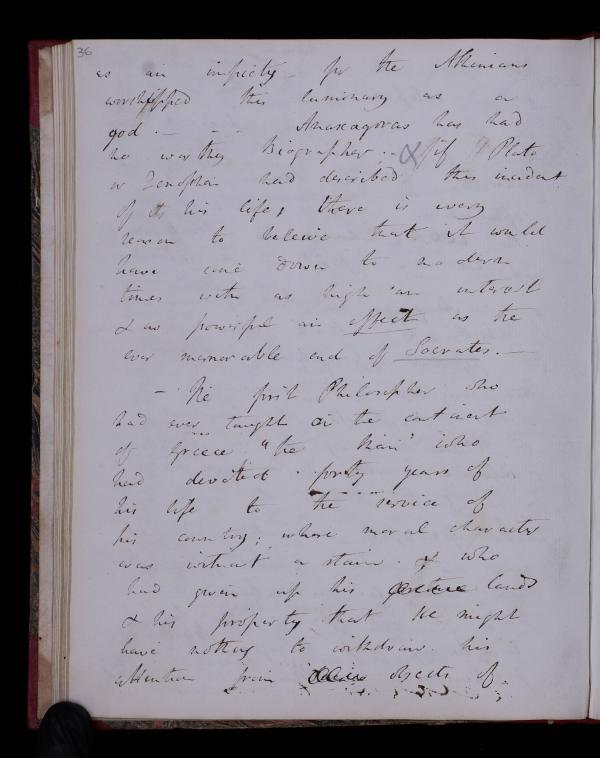 36
as an impiety - for the Athenians
worshipped this luminary as a
god. - - - Anaxagoras has had
no worthy Biographer. - X If Plato
or Zenophon had described this incident
of his life, there is every
reason to beleive that it would
have come down to modern
times with as high an interest
& as powerful an effect as the
ever memorable end of Socrates. -
- The first Philosopher who
had ever taught on the continent
of Greece "the Man" who
had devoted forty years of
his life to the service of
his country; whose moral character
was without a stain. & who
had given up his lands
& his property that He might
have nothing to withdraw his
attention from objects of